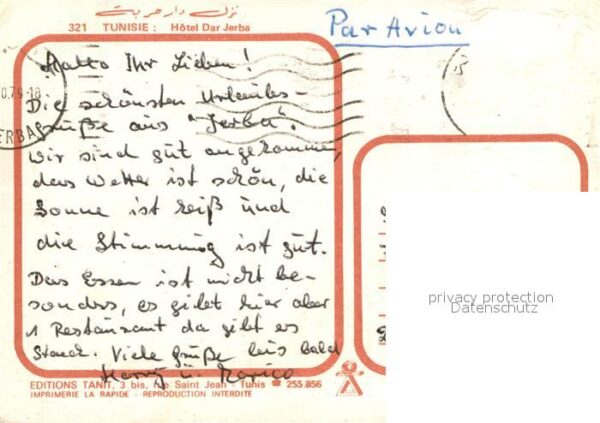 نزل دار جربة
321 TUNISIE : Hôtel Dar Jerba
Par Avion
Hallo Ihr Lieben!
Die schönsten Urlaubs-
grüße aus "Jerba".
Wir sind gut angekommen,
das Wetter ist schön, die
Sonne ist heiß und
die Stimmung ist gut.
Das Essen ist nicht be-
sonders, es gibt hier aber
1 Restaurant da gibt es
Steack. Viele Grüße bis bald
Harry u.
EDITIONS TANIT, 3 bis, rue Saint Jean - Tunis ☎ 255.856
IMPRIMERIE LA RAPIDE - REPRODUCTION INTERDITE
privacy protection
Datenschutz